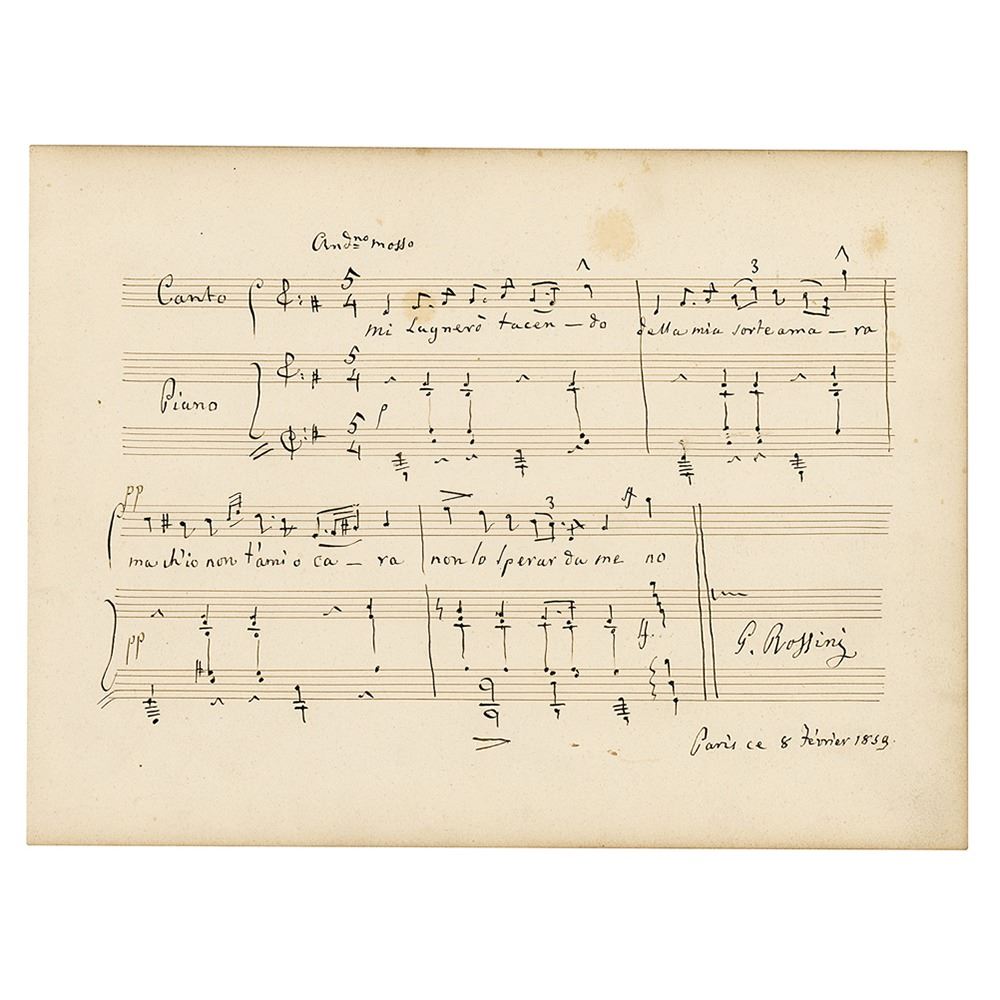 And.no mosso
Canto 5 4 3
mi lagnerò tacen – do della mia sorte ama – ra
Piano 5 4 p
5 4
pp 3 ff
ma ch'io non t'ami o ca – ra non lo sperar da me no
pp ff.
G. Rossini
Paris ce 8 Février 1859.